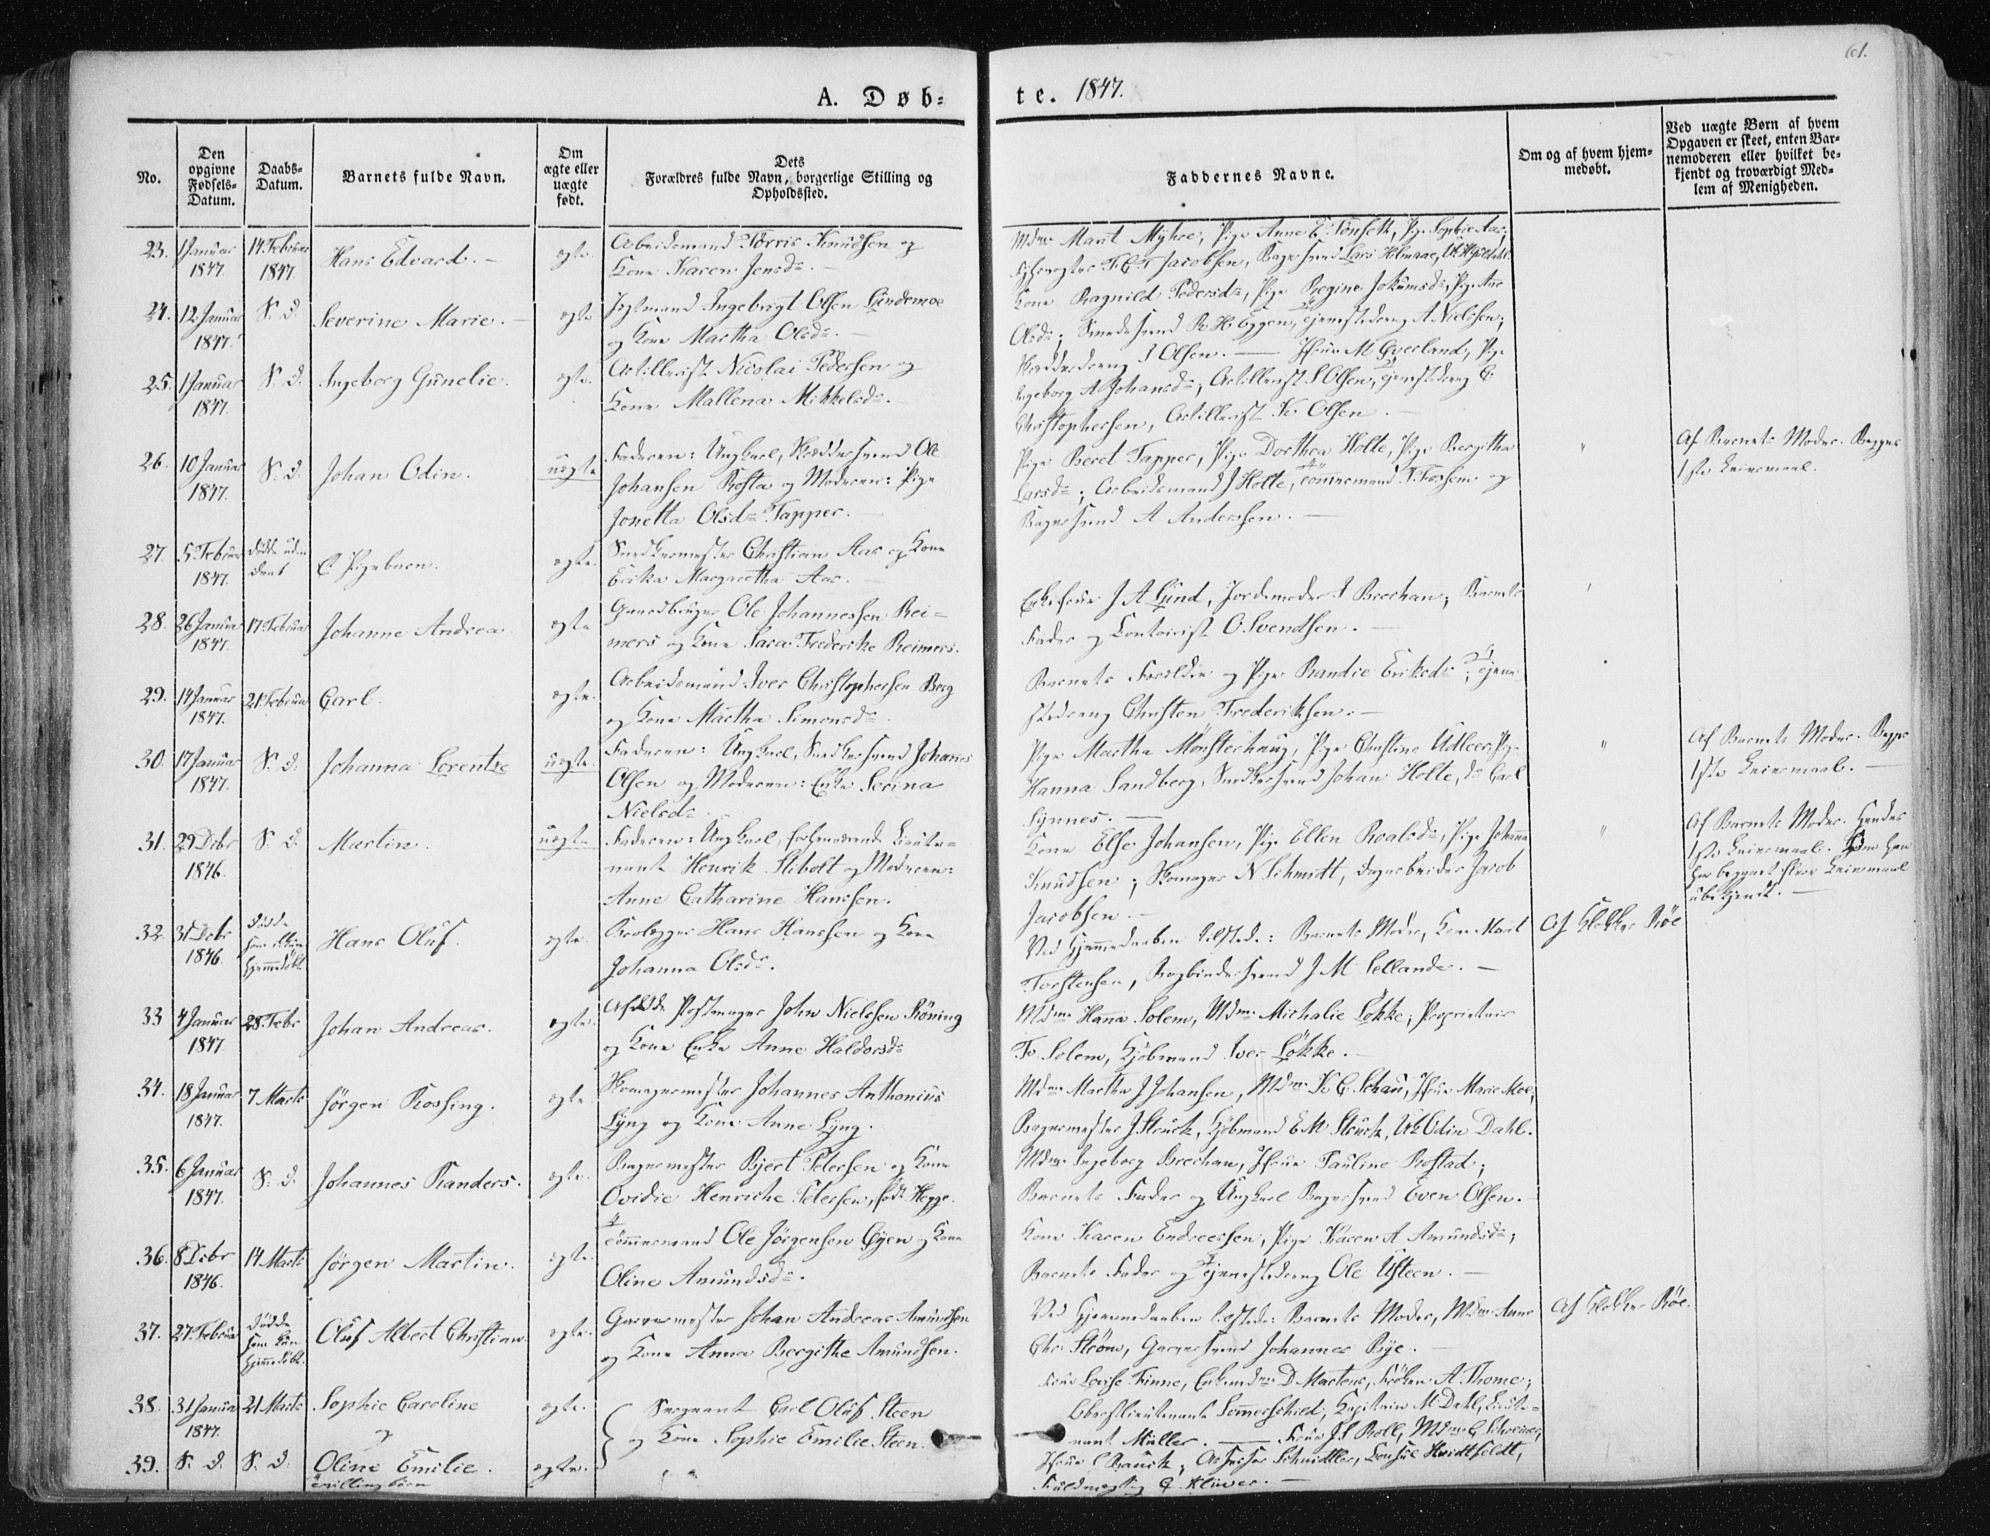 61.
A. Døb=
te. 1847.
No.
Den opgivne Fødsels-Datum.
Daabs-Datum.
Barnets fulde Navn.
Om ægte eller uægte født.
Dets Forældres fulde Navn, borgerlige Stilling og Opholdssted.
Faddernes Navne.
Om og af hvem hjem-medøbt.
Ved uægte Børn af hvem Opgaven er skeet, enten Bar-nemoderen eller hvilket be-kjendt og troværdigt Med-lem af Menigheden.
23. 1 Januar 1847. 14. Februar 1847. Hans Edvard. ægte. Arbeidsmand Tørris Knudsen og
Kone Karen Jensdr.
Mdme Marit Myhre, Pige Anne E. Tonseth, Pg. Sophie Aas,
Jacobsen, Bagersvend Lars Holmaae,
24. 12 Januar 1847. S. D. Severine Marie. ægte Ingebrigt Olsen Lindemoe
og Kone Martha Olsdr.
Kone Ragnild Pedersdr, Pige Regine Jokumsdr, Pige Ane
Olsdr; Smedesvend R. H. Eggen, Tjenestedreng A Nielssen,
25. 1 Januar 1847. S. D. Ingeborg Gunelie. ægte. Artillerist Nicolai Pedersen og
Kone Mallena Mikkelsdr.
Skrædderdreng J Olsen. — Jfrue M Overland, Pige
Ingeborg A Johansdr; Artillerist S Olsen, Tjenestedreng C.
Christophersen, Artillerist K Olsen.
26. 10 Januar 1847. S. D. Johan Odin. uægte Faderen: Ungkarl, Skræddersvend Ole
Johansen Rosta og Moderen: Pige
Jonetta Olsdr Tapper.
Pige Beret Tapper, Pige Dorthea Holte, Pige Bergitha
Larsdr; Arbeidsmand J Holte, Tømmermand T Forsem og
Bagersvend A Anderssen.
Af Barnets Moder. Begges
1ste Leiermaal.
27. 5. Februar 1847. Døde uden Daab Et Pigebarn. ægte. Snedkermester Christian Aas og Kone
Erika Margaretha Aas.
28. 26 Januar 1847. 17. Februar Johanne Andrea. ægte Gaardbruger Ole Johannessen Rei=
mers og Kone Sara Frederikke Reimers.
Enkefrue J A Lund, Jordemoder A Brechan; Barnets
Fader og Contoirist O. Svendsen.
29. 14 Januar 1847. 21. Februar Carl. ægte. Arbeidsmand Iver Christophersen Berg
og Kone Martha Simonsdr.
Barnets Forældre og Pige Randie Eriksdr; Tjene
stedreng Christen Frederiksen.
30. 17 Januar 1847. S. D. Johanna Lorentze uægte. Faderen: Ungkarl, Snedkersvend Johannes
Olsen og Moderen: Enke Serina
Nielsdr.
Pige Martha Mønsterhaug, Pige Christine Udleer, Pige
Hanna Sandberg, Snedkersvend Johan Holte, do Carl
Synnes.
Af Barnets Moder. Begges
1ste Leiermaal.
31. 29 Decbr 1846. S. D. Martin. uægte Faderen: Ungkarl, forhenværende Lieute=
nant Henrik Stibolt og Moderen:
Anne Catharine Hanssen.
Kone Else Johansen, Pige Ellen Roalsdr, Pige Johanna
Knudsen; Skomager N. Schmidt, Dagarbeider Jacob
Jacobsen.
Af Barnets Moder. Hendes
1ste Leiermaal. Om han
har begaaet flere Leiermaal
ubekjendt.
32. 31 Decbr 1846. Døde som kun hjemmedøbt Hans Oluf. ægte. Hans Hanssen og Kone
Johanna Olsdr.
Ved Hjemmedaaben tilstede: Barnets Moder, Kone Marit
Torstensen, Bogbindersvend J M. Sellande.
Af Klokker Røe
33 4 Januar 1847 28. Febr Johan Andreas. ægte. Afdøde Postmager John Nielsen Røning
og Kone Enke Anne Haldorsdr
Mdme Hanna Solem, Mdme Michalie Løkke; Proprietair
To. Solem, Kjøbmand Iver Løkke.
34. 18 Januar 1847. 7 Marts Jørgen Rossing. ægte Skomagermester Johannes Anthonius
Lyng og Kone Anne Lyng.
Mdme Martha J Johansen, Mdme K C. Schau, Jfrue Marie Moe;
Bagermester J. Struck, Kjøbmand E M. Struck, Uk Odin Dahl.
35. 6 Januar 1847. S. D. Johannes Randers. ægte. Bagermester Bjert Petersen og Kone
Ovidie Henriche Petersen, født Hegge.
Mdme Ingeborg Brechan, Jfrue Pauline Rostad;
Barnets Fader og Ungkarl Bagersvend Even Olsen.
36. 8 Decbr 1846. 14 Marts Jørgen Martin. ægte. Tømmermand Ole Jørgensen Øyen og Kone
Oline Amundsdr.
Kone Karen Endressen, Pige Karen A Amundsdr;
Barnets Fader og Tjenestedreng Ole Usteen.
37. 27. Februar Døde som kun hjemmedøbt. Oluf Albert Christian ægte. Garvermester Johan Andreas Amundsen
og Kone Anna Bergithe Amundsen.
Ved Hjemmedaaben tilstede: Barnets Moder, Mdme Anne
Chr. Strøm, Garversvend Johannes Rye.
Af Klokker Røe.
38. 31 Januar 1847. 21 Marts Sophie Caroline ægte. Sergeant Carl Oluf Steen
og
og Kone Sophie Emilie Steen.
Frue Lovise Finne, D Martens, Frøken A. Thome;
Oberstlieutenant Sommerschield, Kapitain M. Dahl, Lieute=
nant Müller. — Frue J. S Roll, Mdme C. Schreiner,
39. S. D. S. D. Oline Emilie. ægte. "
Tvillingbørn
Jfrue C Bauck; Assessor Schnitler, Consul Hvidtfeldt,
Fuldmægtig C Kluwer.